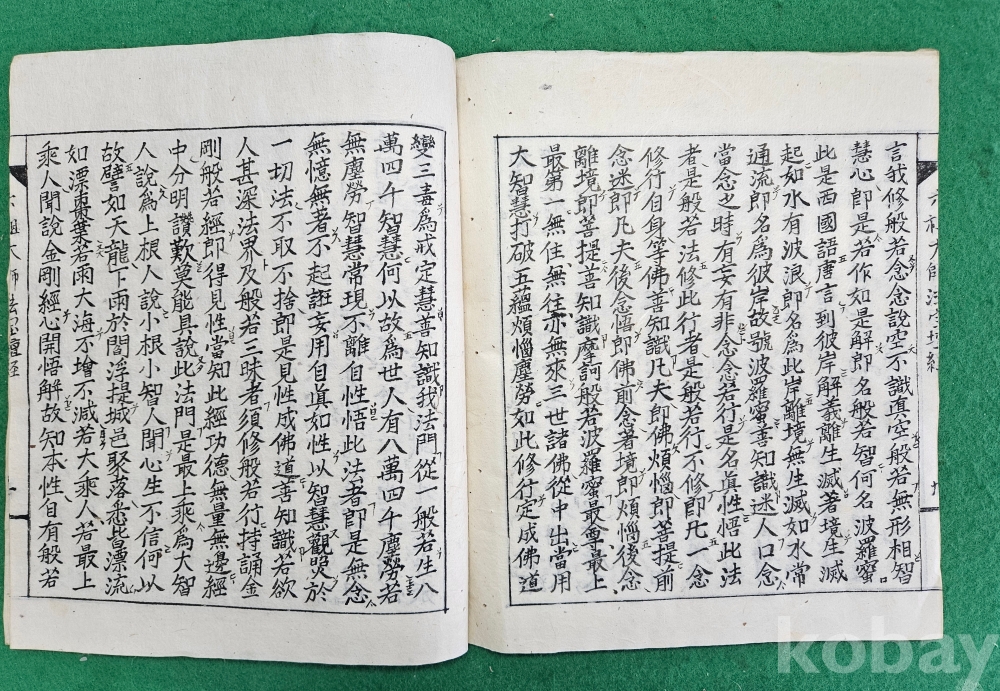 言我修般若念念說空不識眞空般若無形相智
慧心即是若作如是解即名般若智何名波羅蜜
此是西國語唐言到彼岸解義離生滅著境生滅
起如水有波浪即名爲此岸離境無生滅如水常
通流即名爲彼岸故號波羅蜜善知識迷人口念
當念之時有妄有非念念若行是名眞性悟此法
者是般若法修此行者是般若行不修即凡一念
修行自身等佛善知識凡夫即佛煩惱即菩提前
念迷即凡夫後念悟即佛前念著境即煩惱後念
離境即菩提善知識摩訶般若波羅蜜最尊最上
最第一無住無往亦無來三世諸佛從中出當用
大智慧打破五蘊煩惱塵勞如此修行定成佛道
變三毒爲戒定慧善知識我法門從一般若生八
萬四千智慧何以故爲世人有八萬四千塵勞若
無塵勞智慧常現不離自性悟此法者即是無念
無憶無著不起誑妄用自眞如性以智慧觀照於
一切法不取不捨即是見性成佛道善知識若欲
入甚深法界及般若三昧者須修般若行持誦金
剛般若經即得見性當知此經功德無量無邊經
中分明讚歎莫能具說此法門是最上乘爲大智
人說爲上根人說小根小智人聞心生不信何以
故譬如天龍下雨於閻浮提城邑聚落悉皆漂流
如漂棗葉若雨大海不增不減若大乘人若最上
乘人聞說金剛經心開悟解故知本性自有般若
六祖大師法寶壇經
kobay